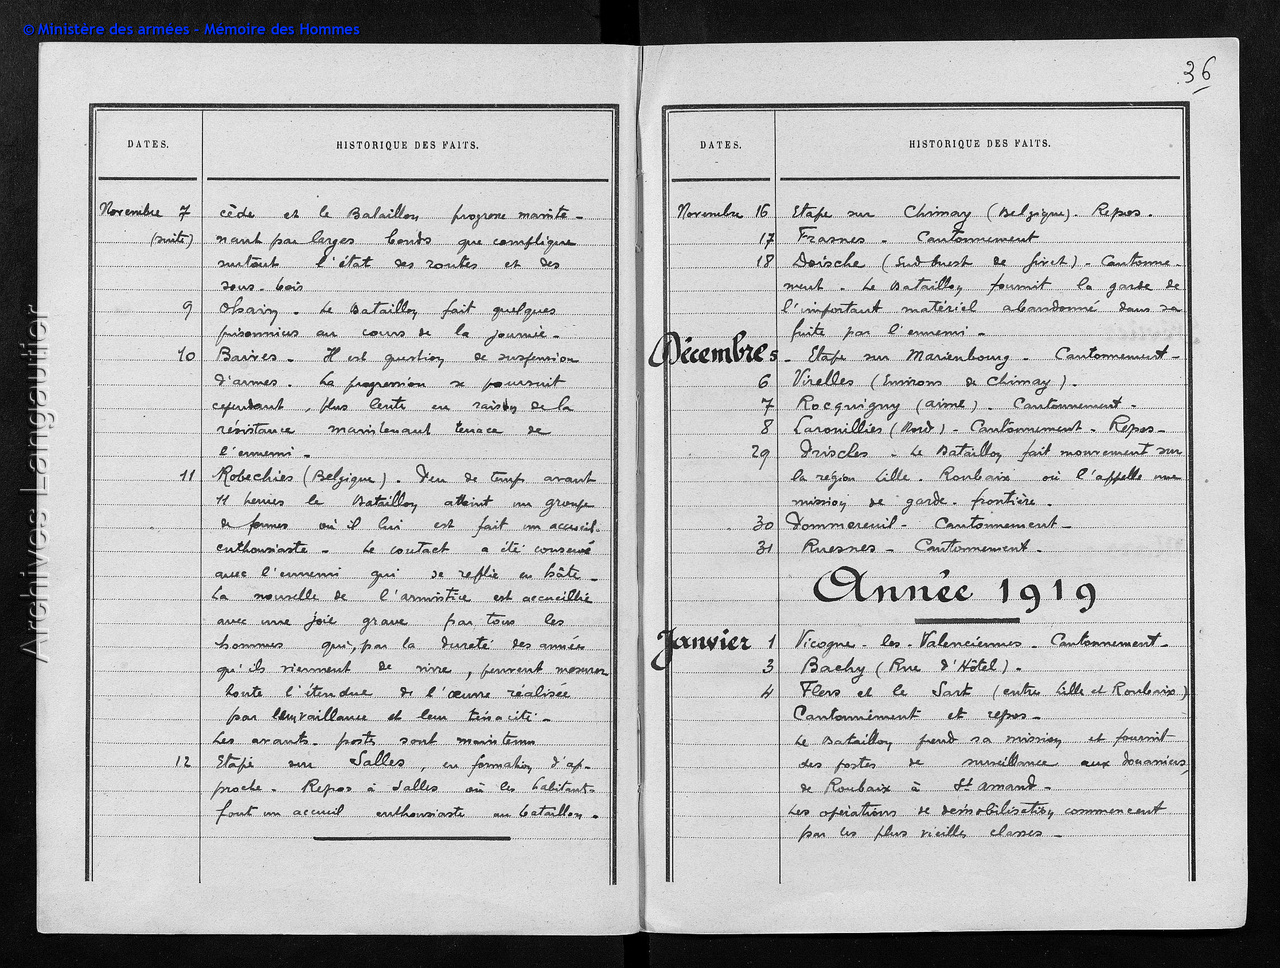 © Ministère des armées - Mémoire des Hommes
Archives Langautier
DATES. HISTORIQUE DES FAITS.
Novembre 7 cède et le Bataillon progresse mainte-
(suite) nant par larges bonds que complique
surtout l'état des routes et des
sous-bois
9 Ohain. Le Bataillon fait quelques
prisonniers au cours de la journée.
10 Baives. Il est question de suspension
d'armes. La progression se poursuit
cependant, plus lente en raison de la
résistance maintenant tenace de
l'ennemi.
11 Robechies (Belgique). Peu de temps avant
11 heures le Bataillon atteint un groupe
de fermes où il lui est fait un accueil
enthousiaste. Le contact a été conservé
avec l'ennemi qui se replie en hâte.
La nouvelle de l'armistice est accueillie
avec une joie grave par tous les
hommes qui, par la dureté des années
qu'ils viennent de vivre, peuvent mesurer
toute l'étendue de l'œuvre réalisée
par leur vaillance et leur ténacité.
Les avants-postes sont maintenus
12 Etape sur Salles, en formation d'ap-
proche. Repos à Salles où les habitants
font un accueil enthousiaste au bataillon.
36
DATES. HISTORIQUE DES FAITS.
Novembre 16 Etape sur Chimay (Belgique). Repos.
17 Frasnes. Cantonnement
18 Doische (Sud Ouest de Givet). Cantonne-
ment. Le Bataillon fournit la garde de
l'important matériel abandonné dans sa
fuite par l'ennemi.
Décembre 5 - Etape sur Marienbourg. Cantonnement-
6 Virelles (Environs de Chimay).
7 Rocquigny (aisne). Cantonnement.
8 Larouillies (Nord). Cantonnement. Repos-
29 Prisches. Le Bataillon fait mouvement sur
la région Lille. Roubaix où l'appelle une
mission de garde-frontière.
30 Pommereuil. Cantonnement-
31 Ruesnes. Cantonnement.
Année 1919
Janvier 1 Vicogne-les-Valenciennes. Cantonnement-
3 Bachy (Rue d'Hôtel).
4 Flers et le Sart (entre Lille et Roubaix)
Cantonnement et repos.
Le Bataillon prend sa mission et fournit
des postes de surveillance aux douaniers,
de Roubaix à St amand.
Les opérations de démobilisation commencent
par les plus vieilles classes.